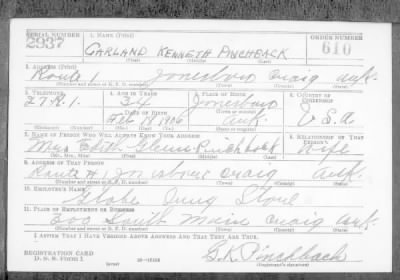 SERIAL NUMBER 1. NAME (Print) ORDER NUMBER
2937 GARLAND KENNETH PINCHBACK 610
(First) (Middle) (Last)
2. ADDRESS (Print)
Route 1 Jonesboro Craig Ark.
(Number and street or R. F. D. number) (Town) (County) (State)
3. TELEPHONE 4. AGE IN YEARS 5. PLACE OF BIRTH 6. COUNTRY OF CITIZENSHIP
34 Jonesboro
DATE OF BIRTH
Feb 18 1906 Ark. U.S.A.
(Exchange) (Number) (Mo.) (Day) (Yr.) (State or country)
7. NAME OF PERSON WHO WILL ALWAYS KNOW YOUR ADDRESS 8. RELATIONSHIP OF THAT PERSON
Mrs Edith Pinchback Wife
(Mr., Mrs., Miss) (First) (Middle) (Last)
9. ADDRESS OF THAT PERSON
Route #1 Jonesboro Craig Ark.
(Number and street or R. F. D. number) (Town) (County) (State)
10. EMPLOYER'S NAME
Globe Drug Store
11. PLACE OF EMPLOYMENT OR BUSINESS
300 South Main Craig Ark.
(Number and street or R. F. D. number) (Town) (County) (State)
I AFFIRM THAT I HAVE VERIFIED ABOVE ANSWERS AND THAT THEY ARE TRUE.
REGISTRATION CARD
D. S. S. Form 1 (over) G.K. Pinchback
(Registrant's signature)